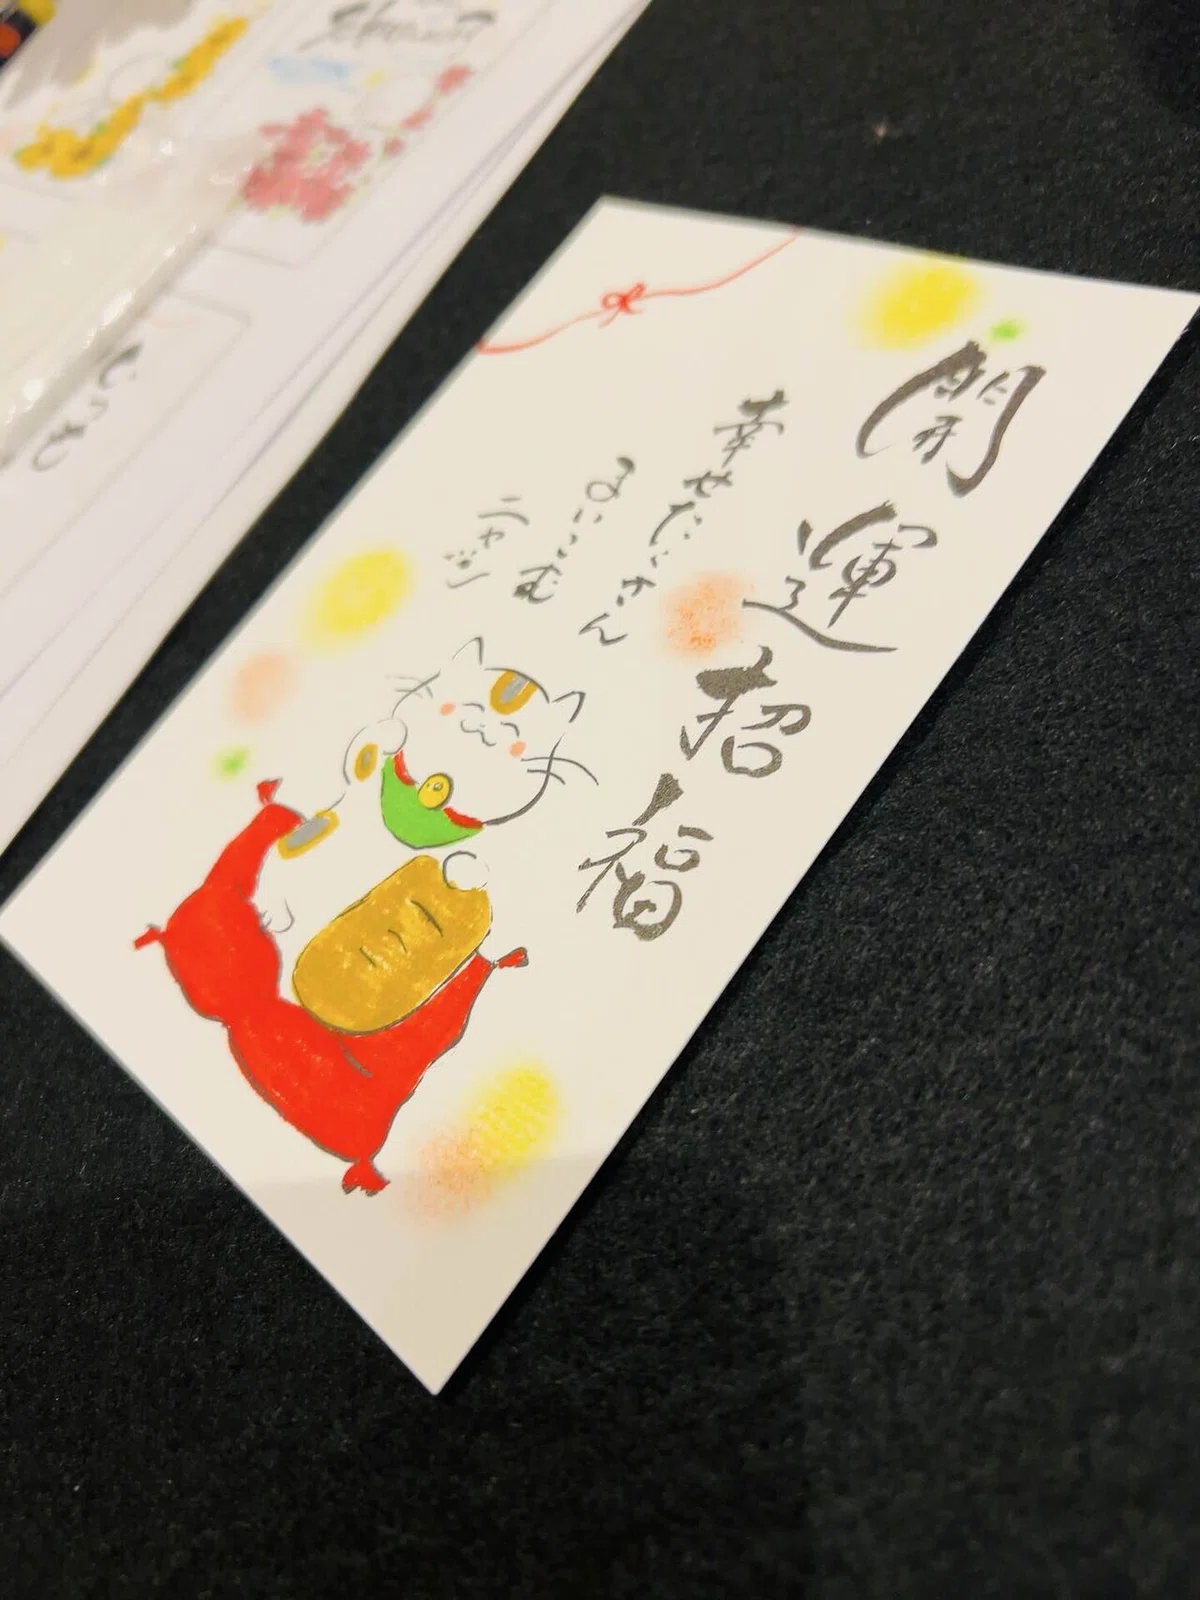 開運招福
幸せたくさん
まいこむ
ニャン